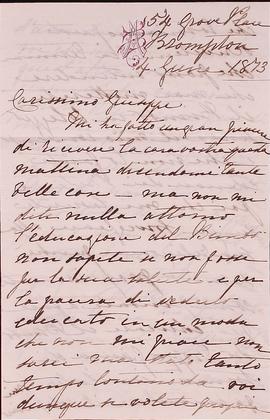 54 Grove Place
Brompton
4 Giu 1873
Carissimo Giuseppe.
Mi ha fatto un gran piacere
di ricevere la cara vostra questa
mattina dicendomi tante
belle cose - ma non mi
dite nulla attorno
l'educazione del
non sapete se non fosse
per la e per
la paura di vederlo
educato in un modo
che non mi piace non
sarei mai stato tanto
tempo lontano da voi
dunque se volete